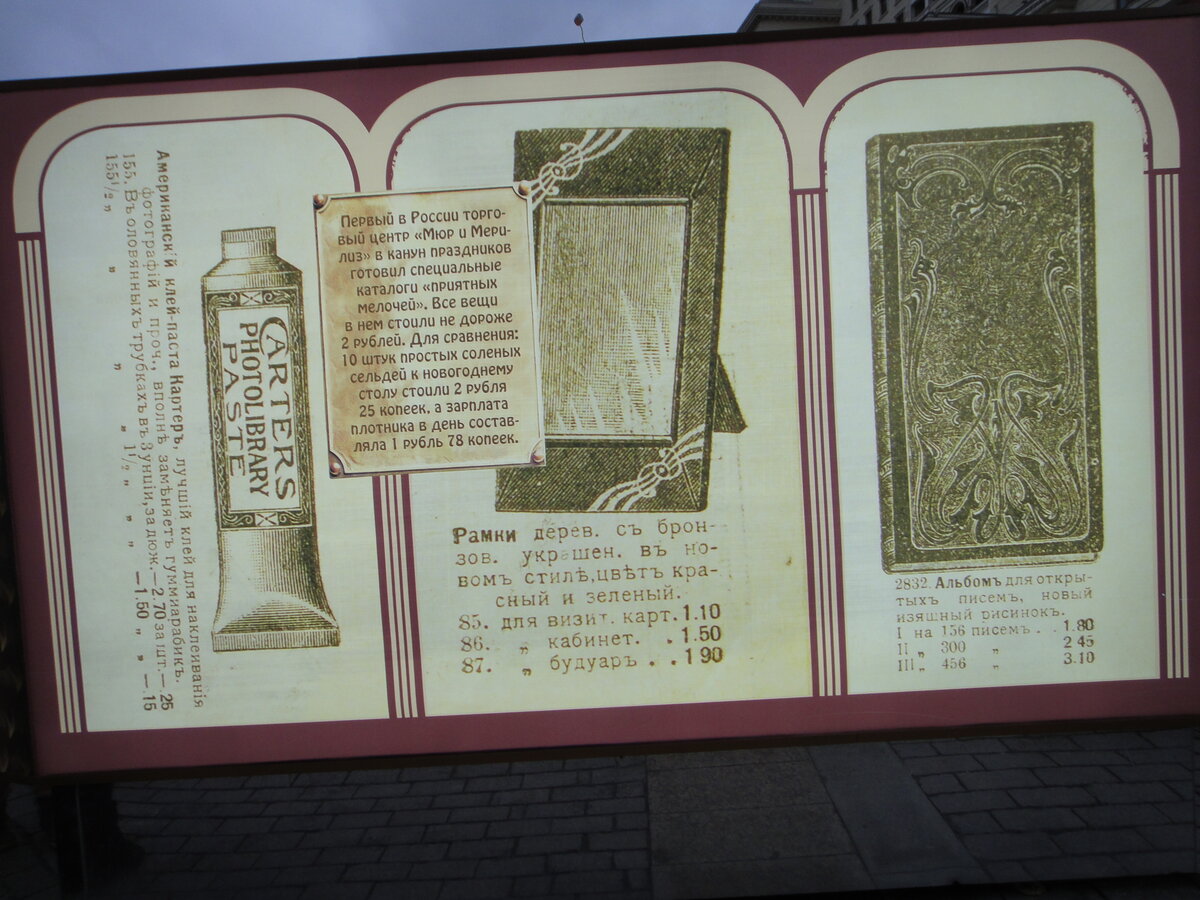 Американскій клей-паста Картеръ, лучшій клей для наклеиванія
фотографій и проч., вполнѣ замѣняетъ гуммиарабикъ.
155. Въ оловянныхъ трубкахъ въ 3 унціи, за дюж. — 2.70 за шт. — 25
155½ „ „ „ „ 1½ „ „ „ — 1.50 „ „ — .15
CARTERS
PHOTOLIBRARY
PASTE
Первый в России торго-
вый центр «Мюр и Мери-
лиз» в канун праздников
готовил специальные
каталоги «приятных
мелочей». Все вещи
в нем стоили не дороже
2 рублей. Для сравнения:
10 штук простых соленых
сельдей к новогоднему
столу стоили 2 рубля
25 копеек, а зарплата
плотника в день состав-
ляла 1 рубль 78 копеек.
Рамки дерев. съ брон-
зов. украшен. въ но-
вомъ стилѣ, цвѣтъ кра-
сный и зеленый.
85. для визит. карт. 1.10
86. „ кабинет. . 1.50
87. „ будуаръ . . 1 90
2832. Альбомъ для откры-
тыхъ писемъ, новый
изящный рисинокъ.
I на 156 писемъ . . 1.80
II „ 300 „ 2 45
III „ 456 „ 3.10